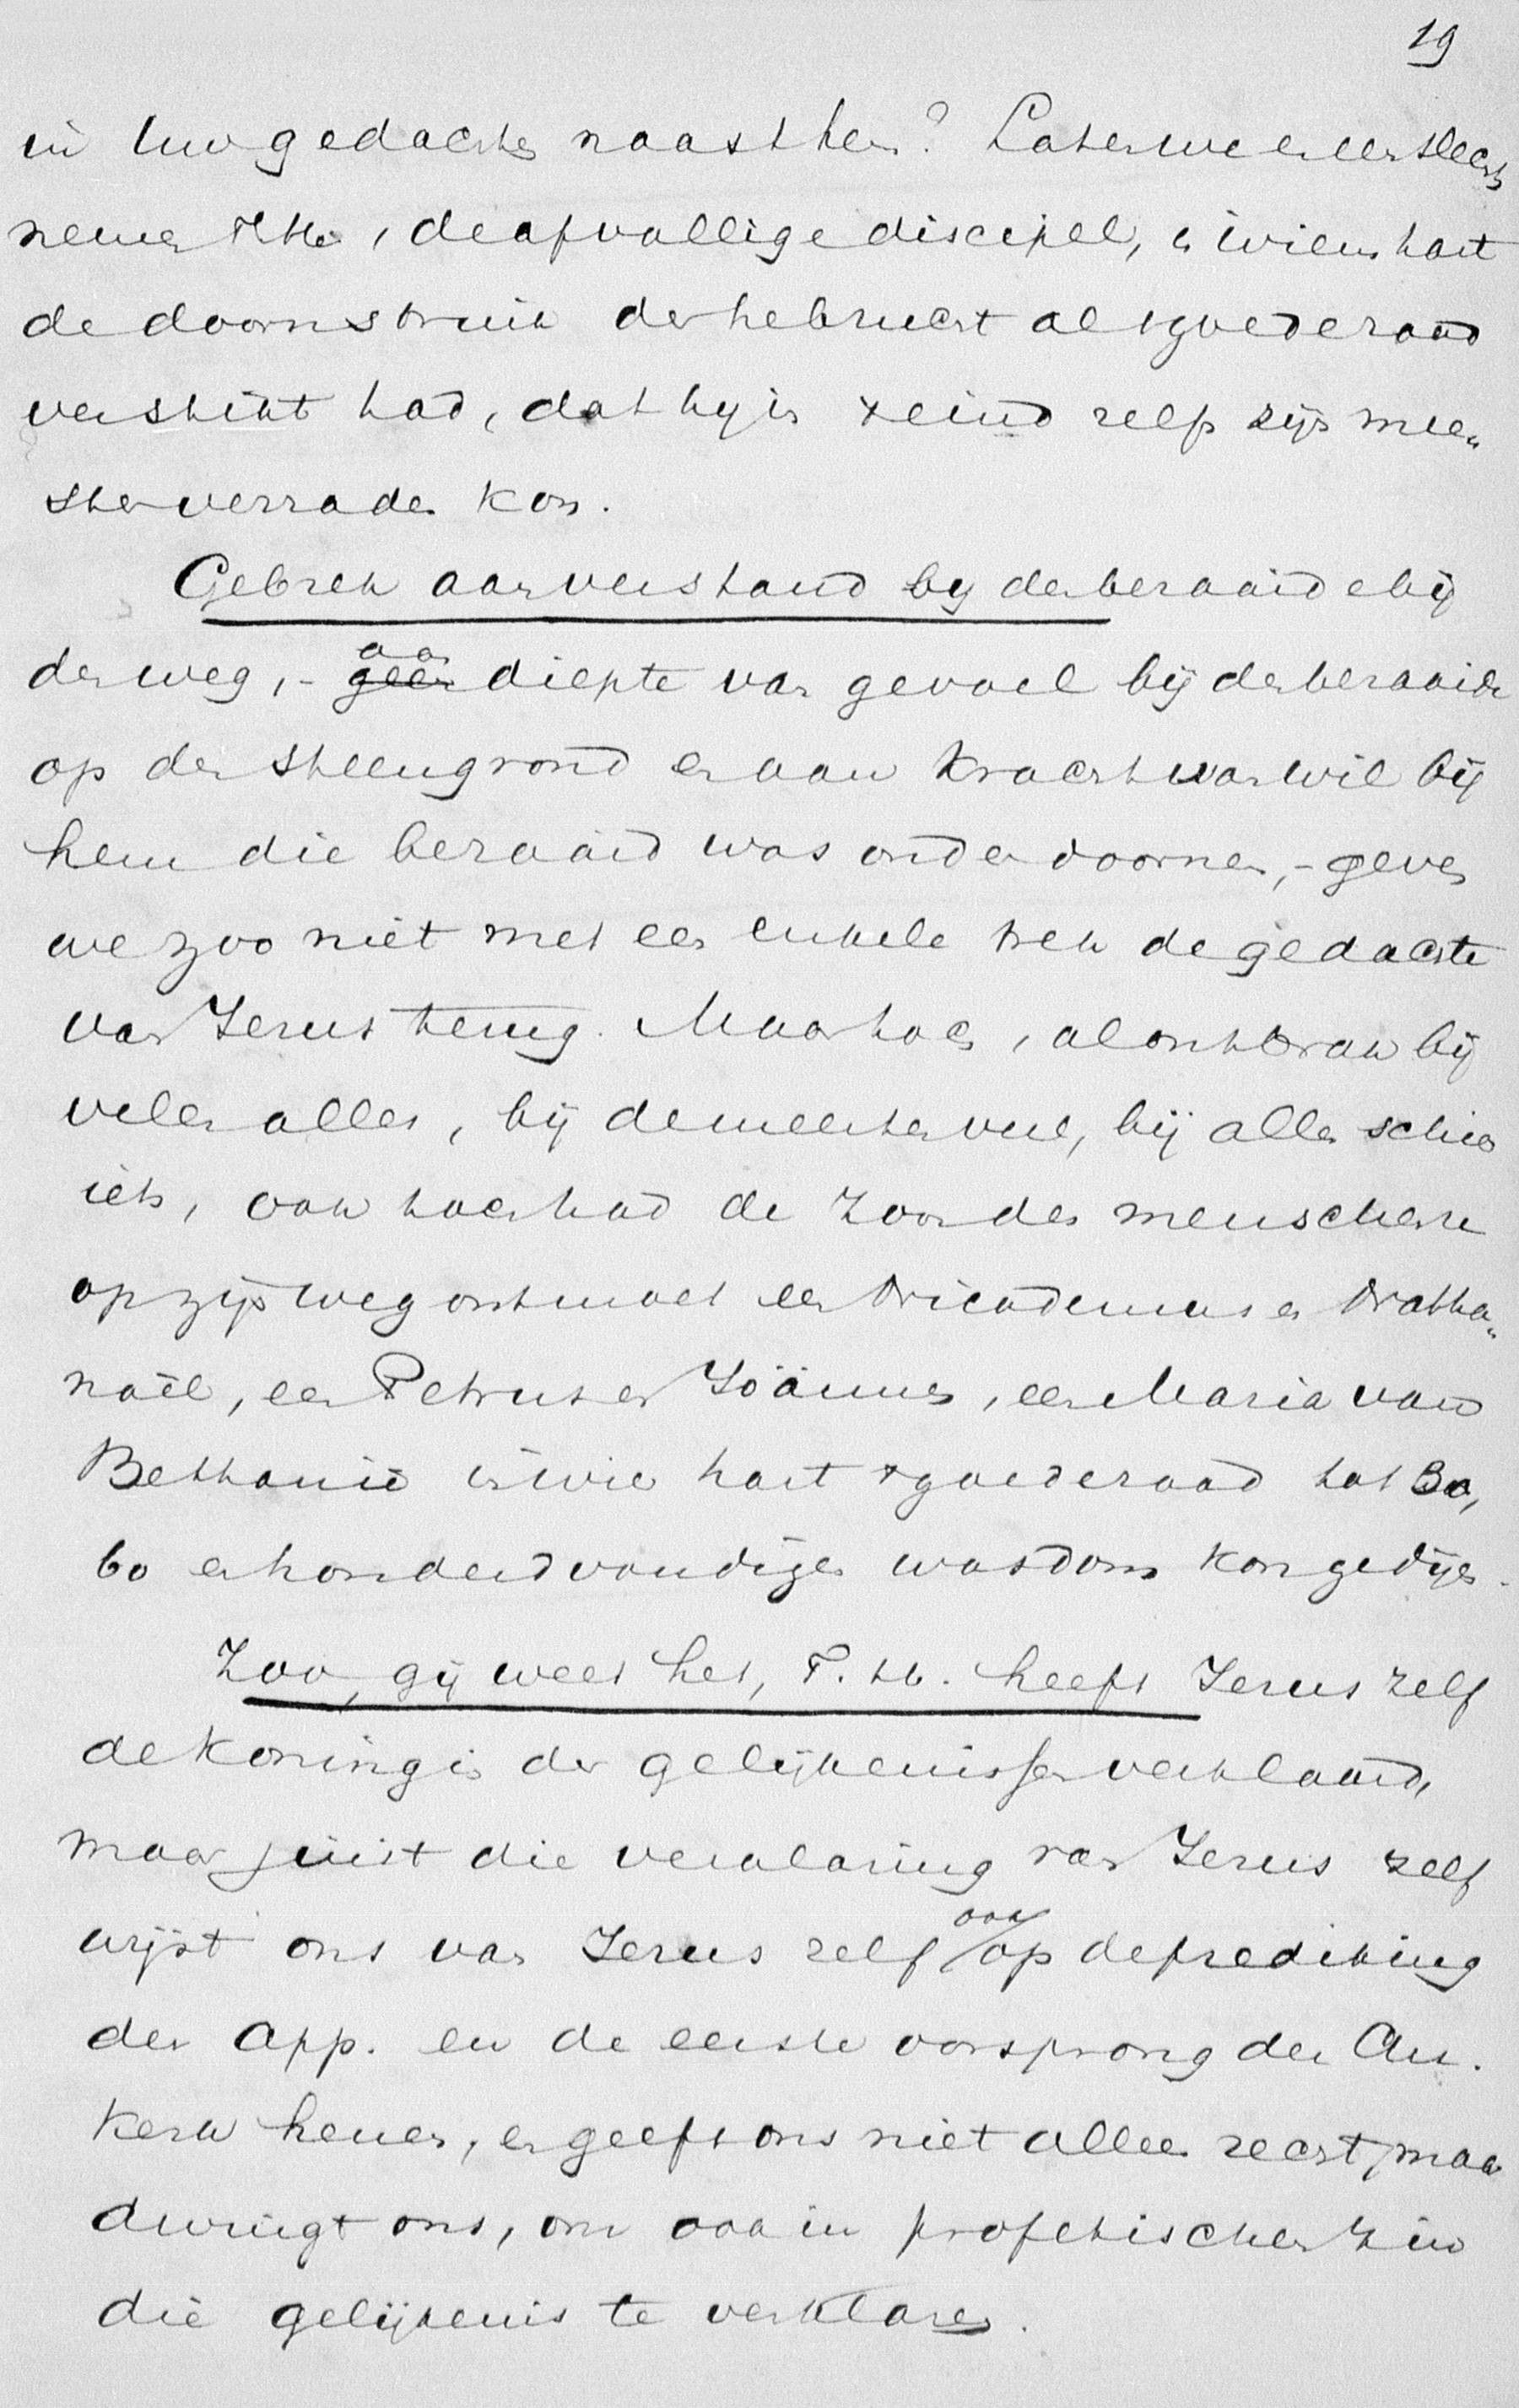 19
in Uw gedachte naast hen? Laten we er een slechts
nemen, de afvallige discipel, in wiens hart
de doornstruik der hebzucht al 't goede zaad
verstikt had, dat hij in 't eind zelfs zijn mee„
ster verraden kon.
Gebrek aan verstand by den bezaaide bij
den weg, - aan diepte van gevoel bij den bezaaide
op den steengrond en aan kracht van wil bij
hem die bezaaid was onder doornen, - geven
we zoo niet met een enkele trek de gedachte
van Jezus terug. Maar toch, al ontbrak bij
velen alles, bij de meesten veel, bij allen schier
iets, ook toch had de Zoon des menschen
op zijn weg ontmoet een Nicodemus en Natha„
naël, een Petrus en Jöännes, een Maria van
Bethanië in wier hart 't goede zaad tot 30,
60 en honderdvoudigen wasdom kon gedijen.
Zoo, gij weet het, T. H. heeft Jezus zelf
de koningin der gelijkenissen verklaard,
maar juist die verklaring van Jezus zelf
wijst ons van Jezus zelf ook op de prediking
der App. en de eerste oorsprong der Chr.
Kerk henen, en geeft ons niet alleen recht, maar
dwingt ons, om ook in profetischen zin
die gelijkenis te verklaren.